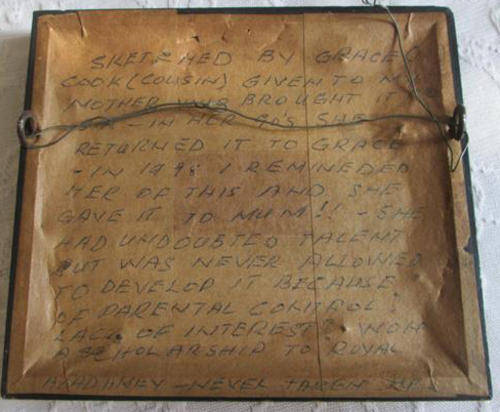 SKETCHED BY GRACE
COOK (COUSIN) GIVEN TO MY
MOTHER WHO BROUGHT IT TO
- IN HER 90'S SHE
RETURNED IT TO GRACE
- IN 1998 I REMINEDED
HER OF THIS AND SHE
GAVE IT TO MUM!! - SHE
HAD UNDOUBTED TALENT
BUT WAS NEVER ALLOWED
TO DEVELOP IT BECAUSE
OF PARENTAL CONTROL!
LACK OF INTEREST? WON
A SCHOLARSHIP TO ROYAL
- NEVER TAKEN UP